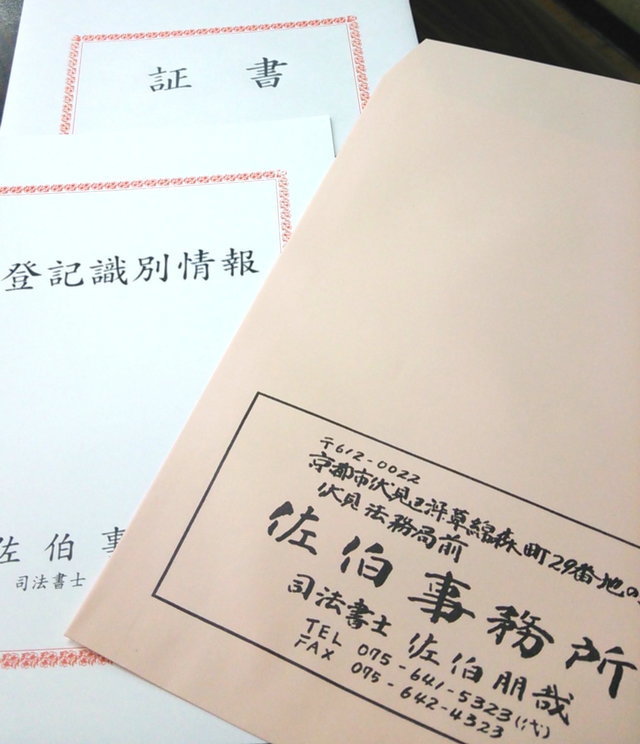 証書
登記識別情報
佐伯事
司法書士
〒612-0022
京都市伏見区深草綿森町29番地の
伏見法務局前
佐伯事務所
司法書士 佐伯朋哉
TEL 075-641-5323(代)
FAX 075-642-4323